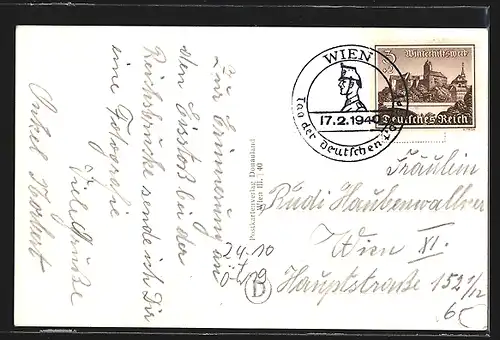 Zur Erinnerung an
den Eisstoß bei der
Reichsbrücke sende ich Dir
eine Fotografie
Viele Grüße
Onkel Norbert
Postkartenverlag Donauland
Wien III / 40
24.10
19
D
WIEN
17.2.1940
Tag der Deutschen
Winterhilfswerk
Deutsches Reich
Fräulein
Rudi Haubenwallner
Wien XI.
Hauptstraße 152 1/12
65